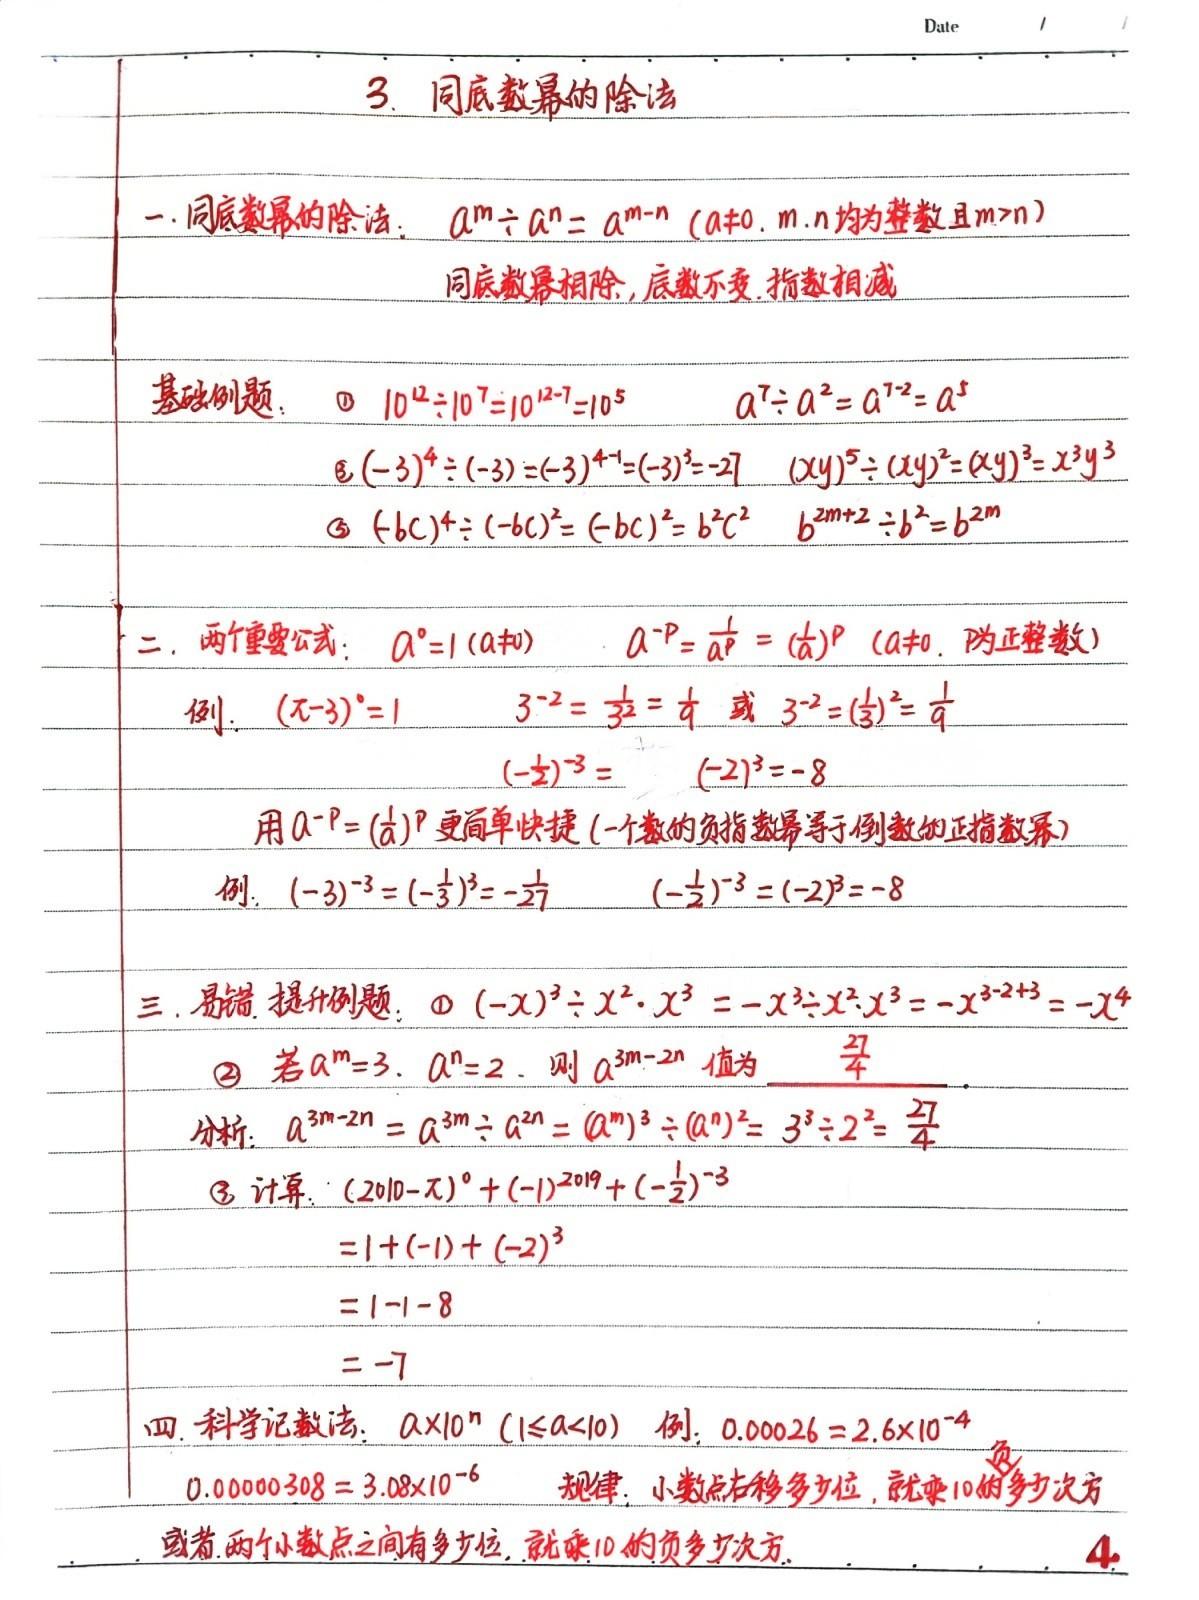 Date / /
3. 同底数幂的除法
一. 同底数幂的除法: aᵐ÷aⁿ= aᵐ⁻ⁿ (a≠0. m.n均为整数且m>n)
同底数幂相除, 底数不变.指数相减
基础例题: ① 10¹²÷10⁷=10¹²⁻⁷=10⁵ a⁷÷a²=a⁷⁻²=a⁵
② (-3)⁴÷(-3)=(-3)⁴⁻¹=(-3)³=-27 (xy)⁵÷(xy)²=(xy)³=x³y³
③ (-bc)⁴÷(-bc)²=(-bc)²=b²c² b²ᵐ⁺²÷b²=b²ᵐ
二. 两个重要公式: a⁰=1(a≠0) a⁻ᵖ=1/aᵖ=(1/a)ᵖ (a≠0. P为正整数)
例: (π-3)⁰=1 3⁻²=1/3²=1/9 或 3⁻²=(1/3)²=1/9
(-1/2)⁻³= (-2)³=-8
用a⁻ᵖ=(1/a)ᵖ更简单快捷(一个数的负指数幂等于倒数的正指数幂)
例: (-3)⁻³=(-1/3)³=-1/27 (-1/2)⁻³=(-2)³=-8
三. 易错.提升例题: ① (-x)³÷x²·x³=-x³÷x²·x³=-x³⁻²⁺³=-x⁴
② 若aᵐ=3. aⁿ=2. 则a³ᵐ⁻²ⁿ值为 27/4 .
分析: a³ᵐ⁻²ⁿ=a³ᵐ÷a²ⁿ=(aᵐ)³÷(aⁿ)²=3³÷2²=27/4
③ 计算: (2010-π)⁰+(-1)²⁰¹⁹+(-1/2)⁻³
=1+(-1)+(-2)³
=1-1-8
=-7
四. 科学记数法: a×10ⁿ (1≤a<10) 例: 0.00026=2.6×10⁻⁴
0.00000308=3.08×10⁻⁶ 规律: 小数点右移多少位, 就乘10的负多少次方
或者.两个小数点之间有多少位, 就乘10的负多少次方.
4.